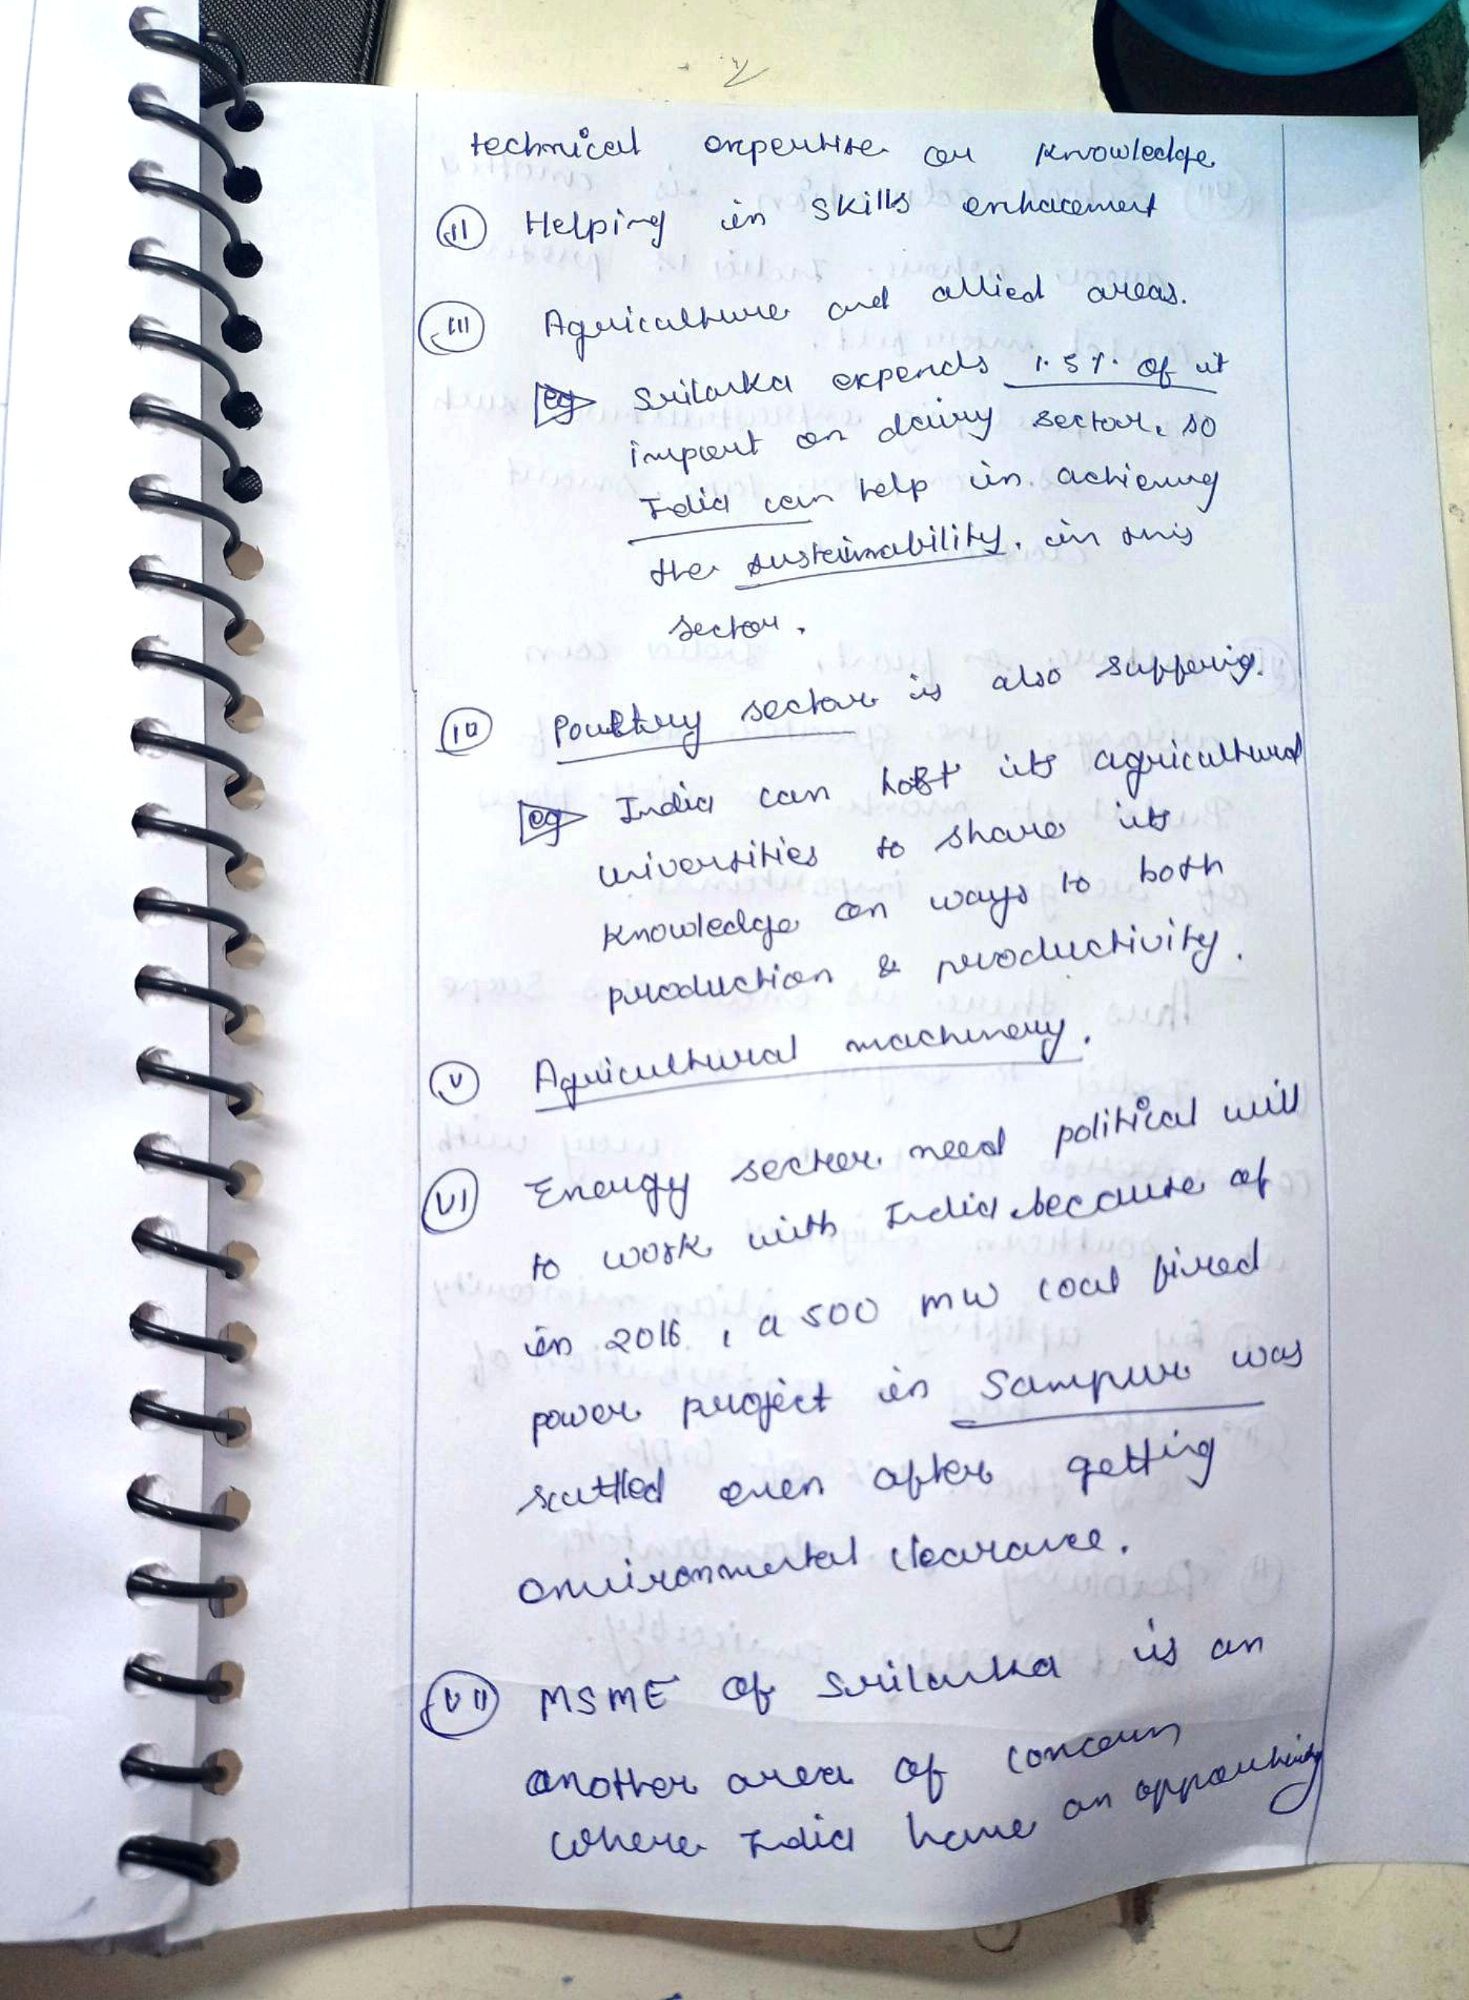 technical expertise or knowledge
(ii) Helping in skills enhacement
(iii) Agriculture and allied areas.
eg Srilanka expends 1.5% of it
import on dairy sector, so
India can help in achieving
the sustainability. in this
sector.
(iv) Poultry sector is also suffering.
eg India can host its agricultural
universities to share its
knowledge on ways to both
production & productivity.
(v) Agricultural machinery.
(vi) Energy sector need political will
to work with India because of
in 2016, a 500 MW coal fired
power project in Sampur was
scuttled even after getting
environmental clearance.
(vii) MSME of Srilanka is an
another area of concern
where India have an opportunity